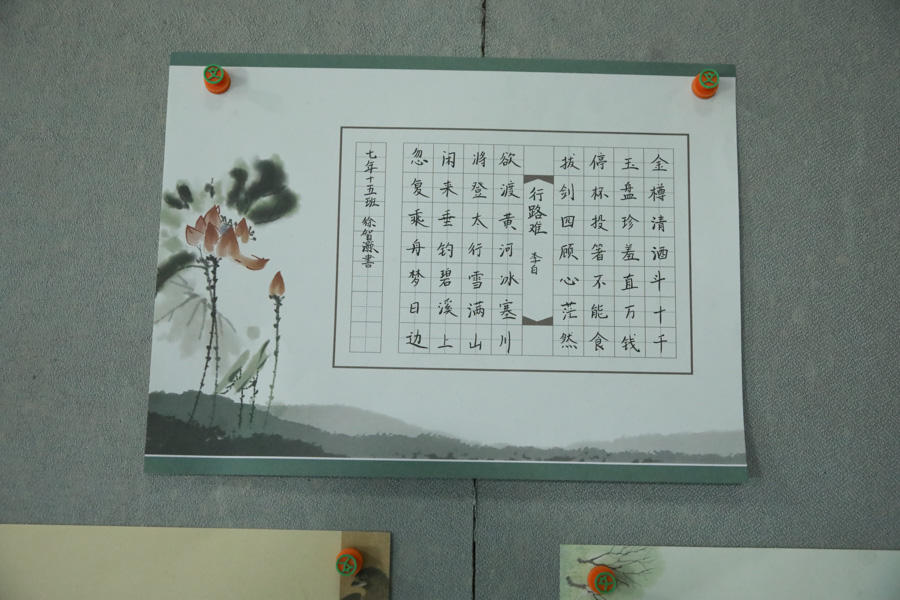 金樽清酒斗十千
玉盘珍羞直万钱
停杯投箸不能食
拔剑四顾心茫然
行路难
李白
欲渡黄河冰塞川
将登太行雪满山
闲来垂钓碧溪上
忽复乘舟梦日边
七年十五班 徐智 书